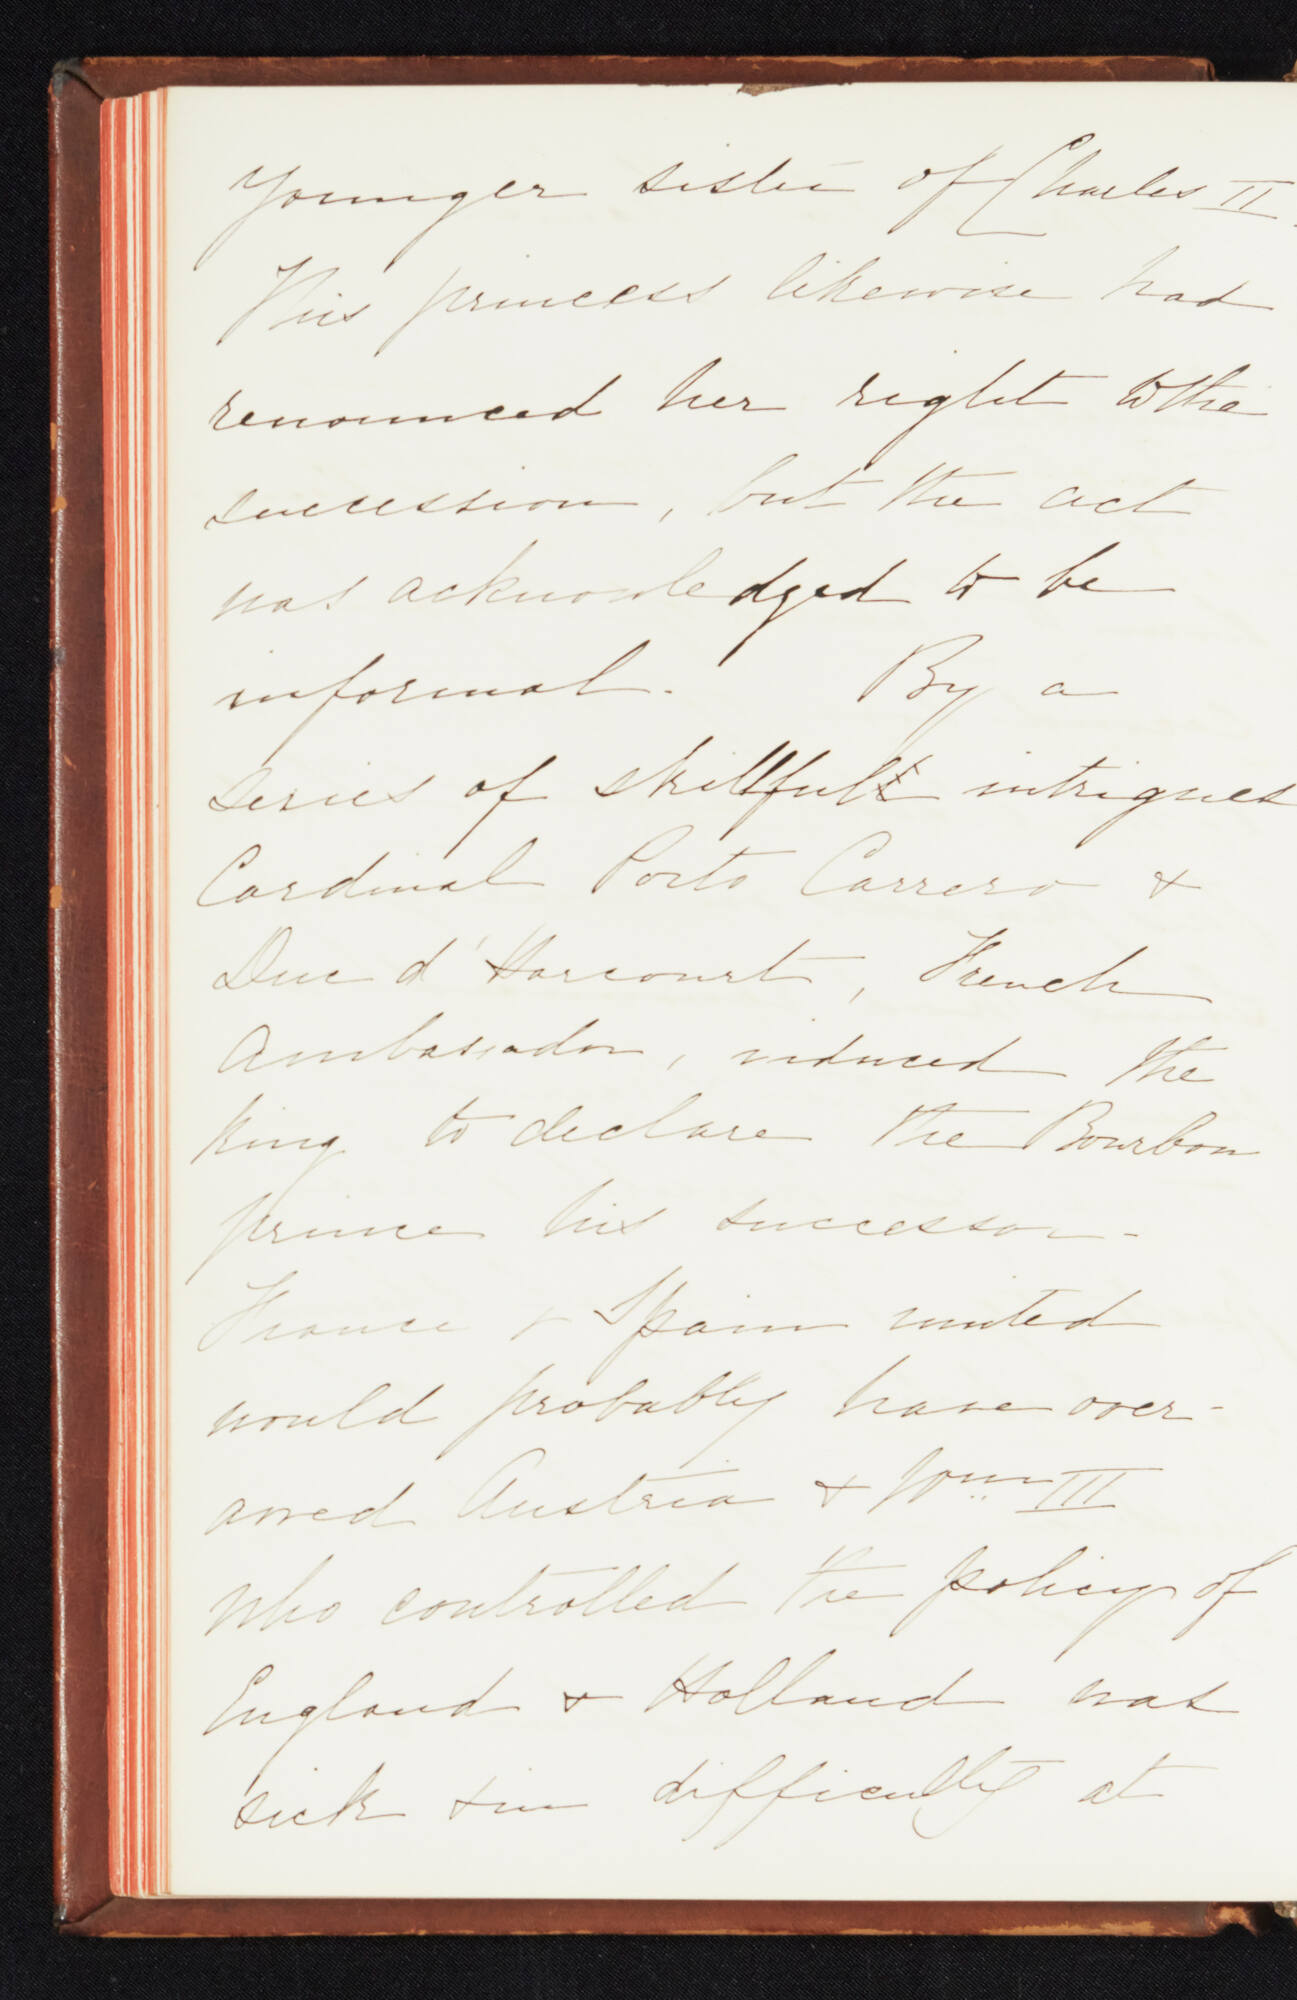 younger sister of Charles II.
This princess likewise had
renounced her right to the
succession, but the act
was acknowledged to be
informal. By a
series of skillfull intrigues
Cardinal Porto Carrero &
Duc d'Harcourt, French
Ambassador, induced the
King to declare the Bourbon
prince his successor.
France & Spain united
would probably have over-
awed Austria & Wm III
who controlled the policy of
England & Holland was
sick & in difficulty at